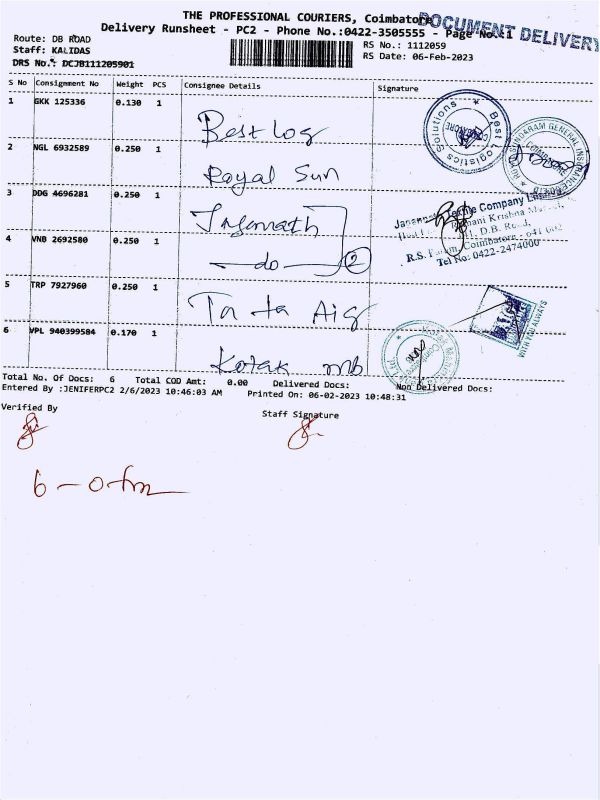 THE PROFESSIONAL COURIERS, Coimbatore
DOCUMENT DELIVERY
Delivery Runsheet - PC2 - Phone No.:0422-3505555 - Page No.:1
Route: DB ROAD
RS No.: 1112059
Staff: KALIDAS
RS Date: 06-Feb-2023
DRS No.: DCJB111205901
S No Consignment No Weight PCS Consignee Details Signature
1 GKK 125336 0.130 1 Best Log
Best Logistics Solutions
2 NGL 6932589 0.250 1 Royal Sun
3 DDG 4696281 0.250 1 Jagannath
4 VNB 2692580 0.250 1 do 2
D.B. Road,
Tel No: 0422-2474000
5 TRP 7927960 0.250 1 Tata Aig
WITH YOU ALWAYS
6 VPL 940399584 0.170 1 Kotak mb
Total No. Of Docs: 6 Total COD Amt: 0.00 Delivered Docs: Non Delivered Docs:
Entered By :JENIFERPC2 2/6/2023 10:46:03 AM Printed On: 06-02-2023 10:48:31
Verified By
Staff Signature